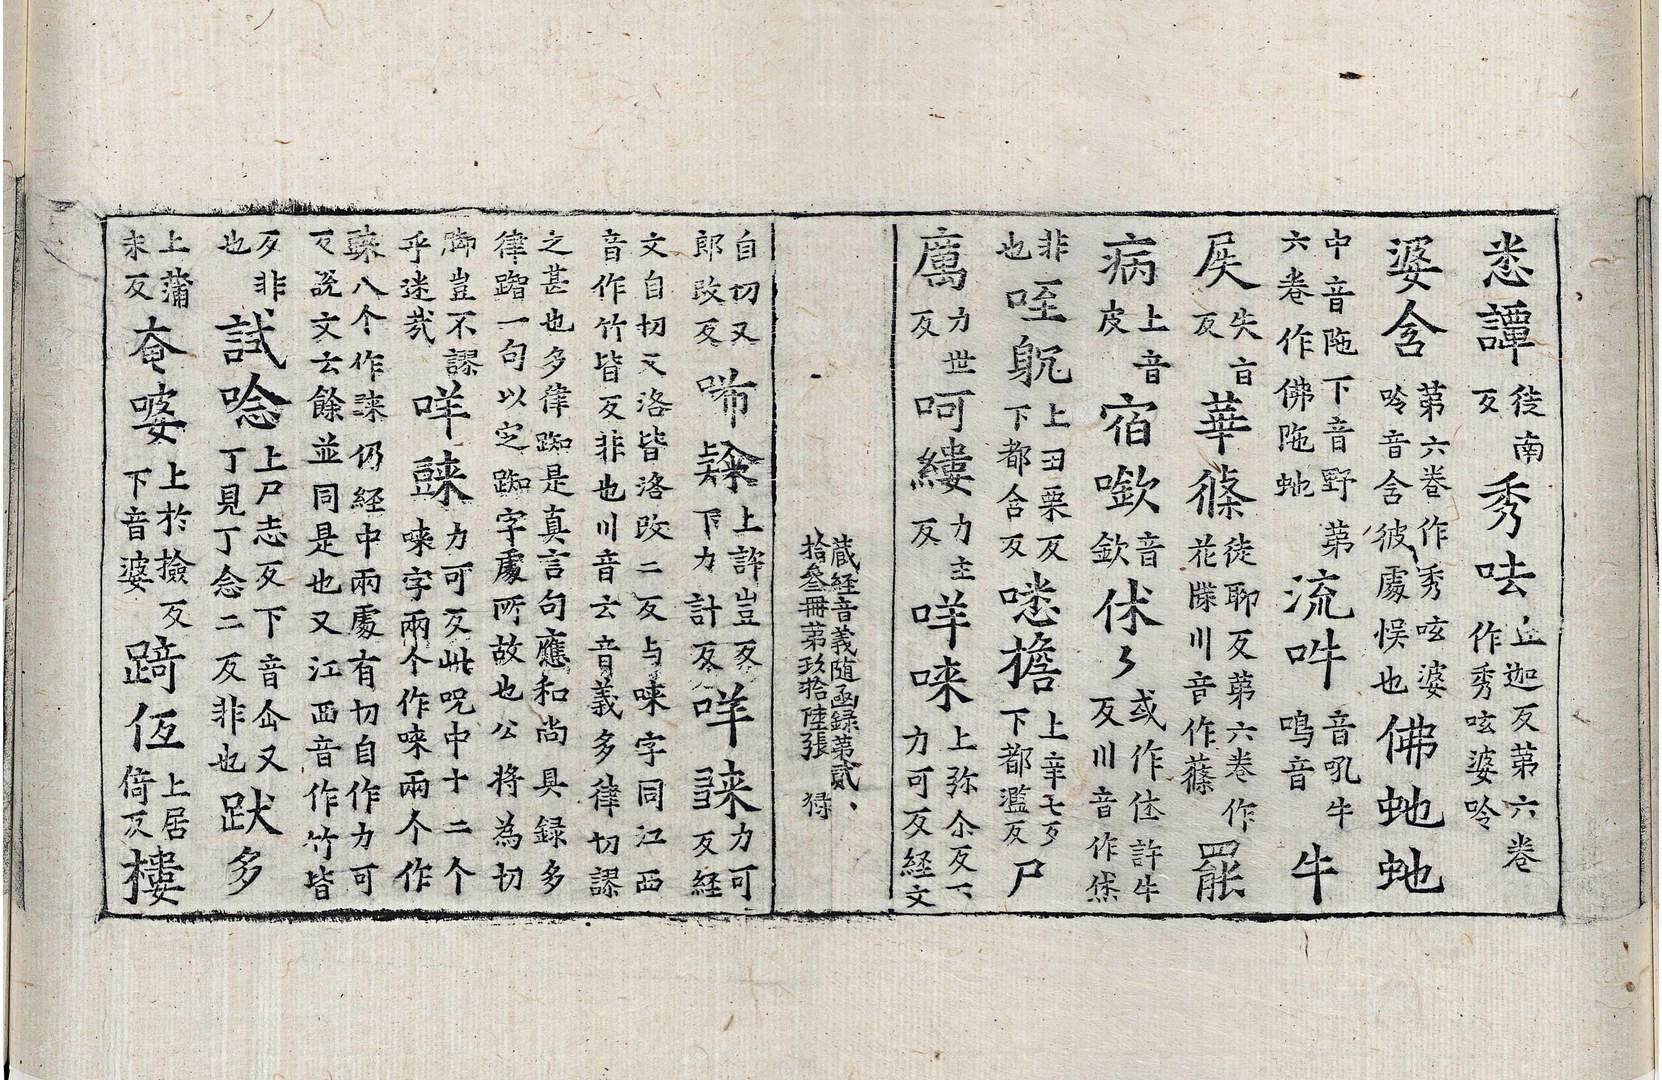 悉譚徒南反秀呿丘迦反第六卷作秀呟婆唥
婆含第六卷作秀呟婆唥音含彼處悮也佛虵虵
中音陁下音野第六卷作佛陁虵流吽音吼牛鳴音牛
屎失旨反華篠徒聊反第六卷作花牒川音作蓧罷
病上音皮宿𭌒音欽休〻或作佅許牛反川音作烋
非也咥躭上田栗反下都含反㗭擔上辛七反下都濫反尸
厲力世反呵縷力主反咩唻上弥尒反下力可反経文
蔵経音義随函録第貳拾叄冊第玖拾陸張 㝵
自切又郎改反唏𮓗上許豈反下力計反咩𧨀力可反経
文自切又洛皆洛改二反与唻字同江西音作竹皆反非也川音云音義多律切謬
之甚也多律踟是真言句應和尚具録多律踟一句以定踟字處所故也公將為切
脚豈不謬乎迷㢤咩𧯯力可反此呪中十二个唻字兩个作唻兩个作
𧯯八个作𧨀仍経中兩處有切自作力可反說文云餘並同是也又江西音作竹皆
反非也試唸上尸志反下音㒱又丁見丁念二反非也䟦多
上蒲末反奄婆上於撿反下音婆踦𠈇上居倚反樓